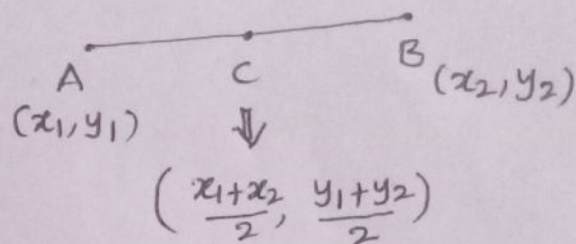 A C B (x₂, y₂)
(x₁, y₁) ⇓
( x₁+x₂/2, y₁+y₂/2 )